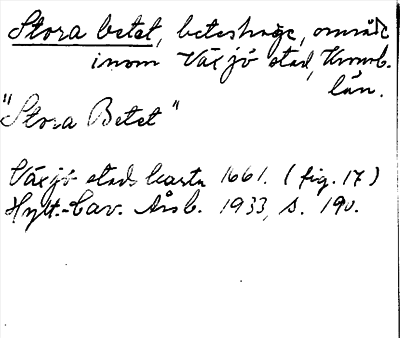 Stora betet, beteshage, område
inom Växjö stad, Kronob.
län.
"Stora Betet"
Växjö stads karta 1661. (fig. 17)
Hylt.-Cav. Årsb. 1933, s. 190.